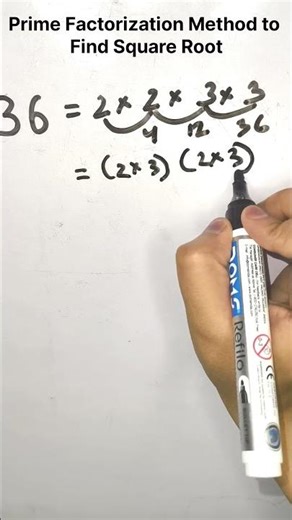 Prime Factorization Method to
Find Square Root
36 = 2 × 2 × 3 × 3
4 12 36
= (2 × 3) (2 × 3)
DOMS Refilo
CE